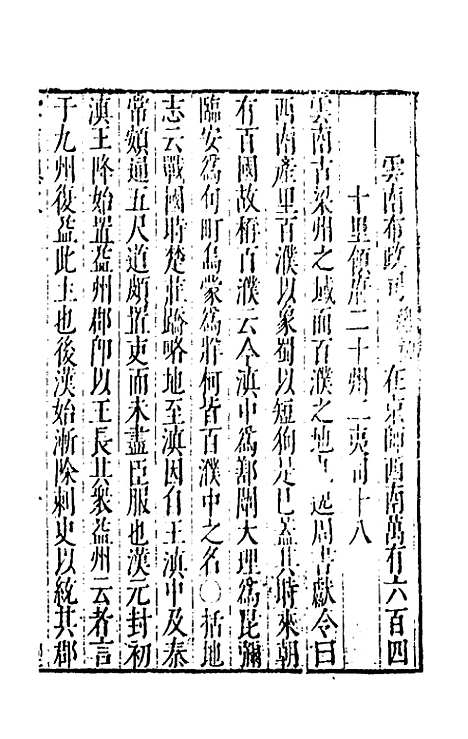 雲南布政司 在京師西南萬有六百四
十里領府二十州二夷司十八
雲南古梁州之域而百濮之地也逸周書獻令曰
西南產里百濮以象齒以短狗是已蓋其時來朝
有百國故稱百濮云今滇中爲鄯闡大理爲昆瀰
臨安爲句町烏蒙爲牂柯皆百濮中之名〇括地
志云戰國時楚莊蹻略地至滇因自王滇中及秦
常頞通五尺道頗置吏而未盡臣服也漢元封初
滇王降始置益州郡仰以王長其衆益州云者言
于九州復益此土也後漢始漸除刺史以統其郡